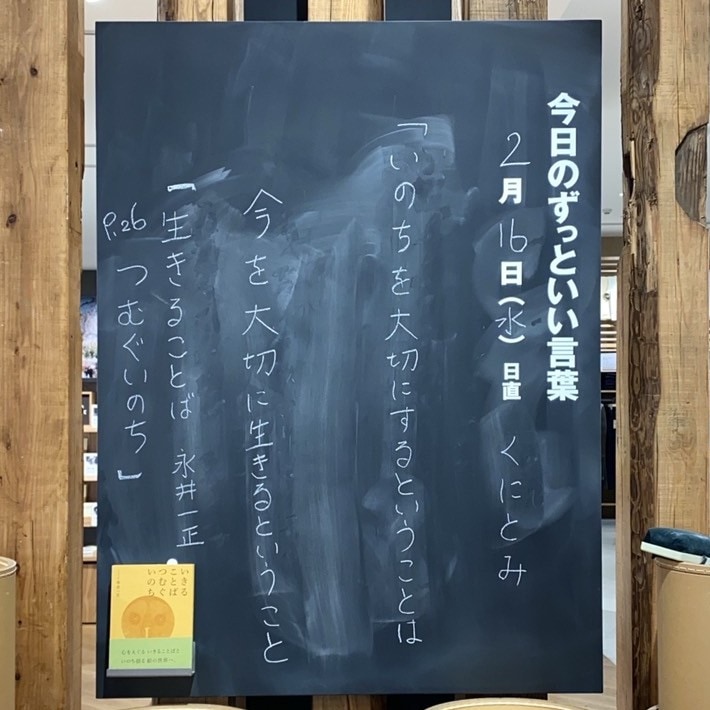 今日のずっといい言葉
2月16日(水) 日直 くにとみ
「いのちを大切にするということは
今を大切に生きるということ
「生きることば 永井一正
P.26 つむぐいのち」
いきる
ことば
つむぐ
いのち